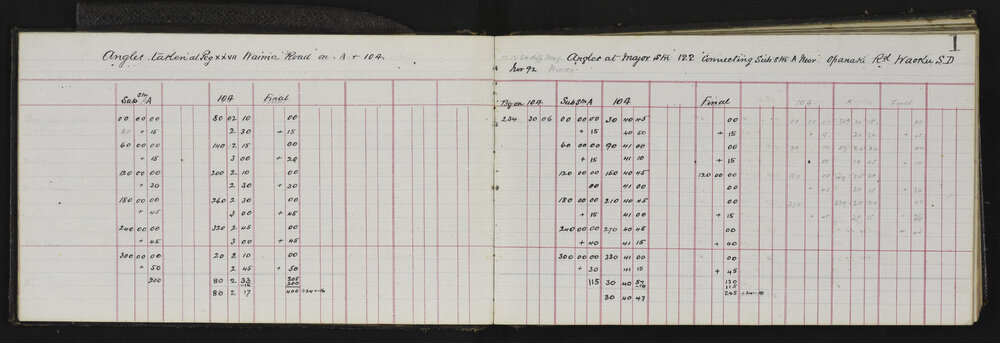 Angles taken at Peg XXVII Waima Road on A + 104.
Sub Stn A 104 Final
00 00 00 80 02 10 00
60 + 15 2 30 + 15
60 00 00 140 2 15 00
+ 15 3 00 + 20
120 00 00 200 2 10 00
+ 30 2 30 + 30
180 00 00 260 2 30 00
+ 45 3 00 + 45
240 00 00 320 2 45 00
+ 45 3 00 + 45
300 00 00 20 2 10 00
+ 50 2 45 + 50
200 80 2 33 205
-16 200
80 2 17 400 ÷ 24 = -16
1
Angles at Major Stn 122 Connecting Sub Stn A near Opanaki Rd Waoku S.D
Nov 92
Bg on 104 Sub Stn A 104 Final
234 30 06 00 00 00 30 40 45 00
+ 15 40 50 + 15
60 00 00 90 41 00 00
+ 15 41 10 + 15
120 00 00 150 40 45 120 00 00
00 41 00 00
180 00 00 210 40 45 00
+ 15 41 00 + 15
240 00 00 270 40 45 00
+ 40 41 15 + 40
300 00 00 330 41 00 00
+ 30 41 15 + 45
115 30 40 57 130
-10 115
30 40 47 245 ÷ 24 = -10
104 A Final